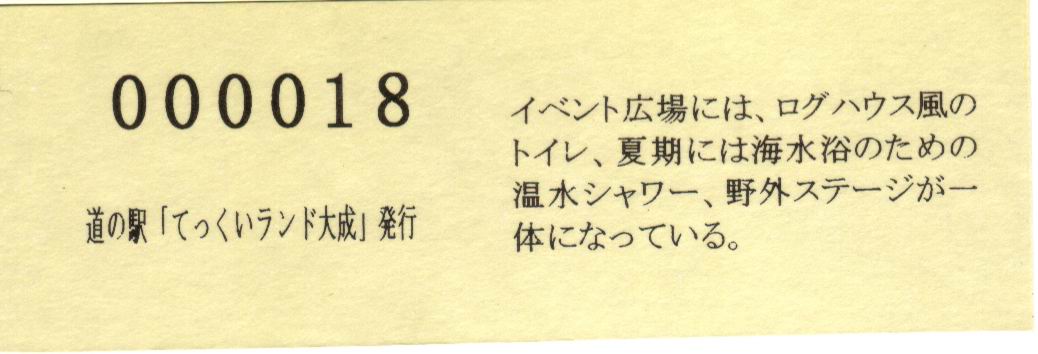 000018
道の駅「てっくいランド大成」発行
イベント広場には、ログハウス風の
トイレ、夏期には海水浴のための
温水シャワー、野外ステージが一
体になっている。